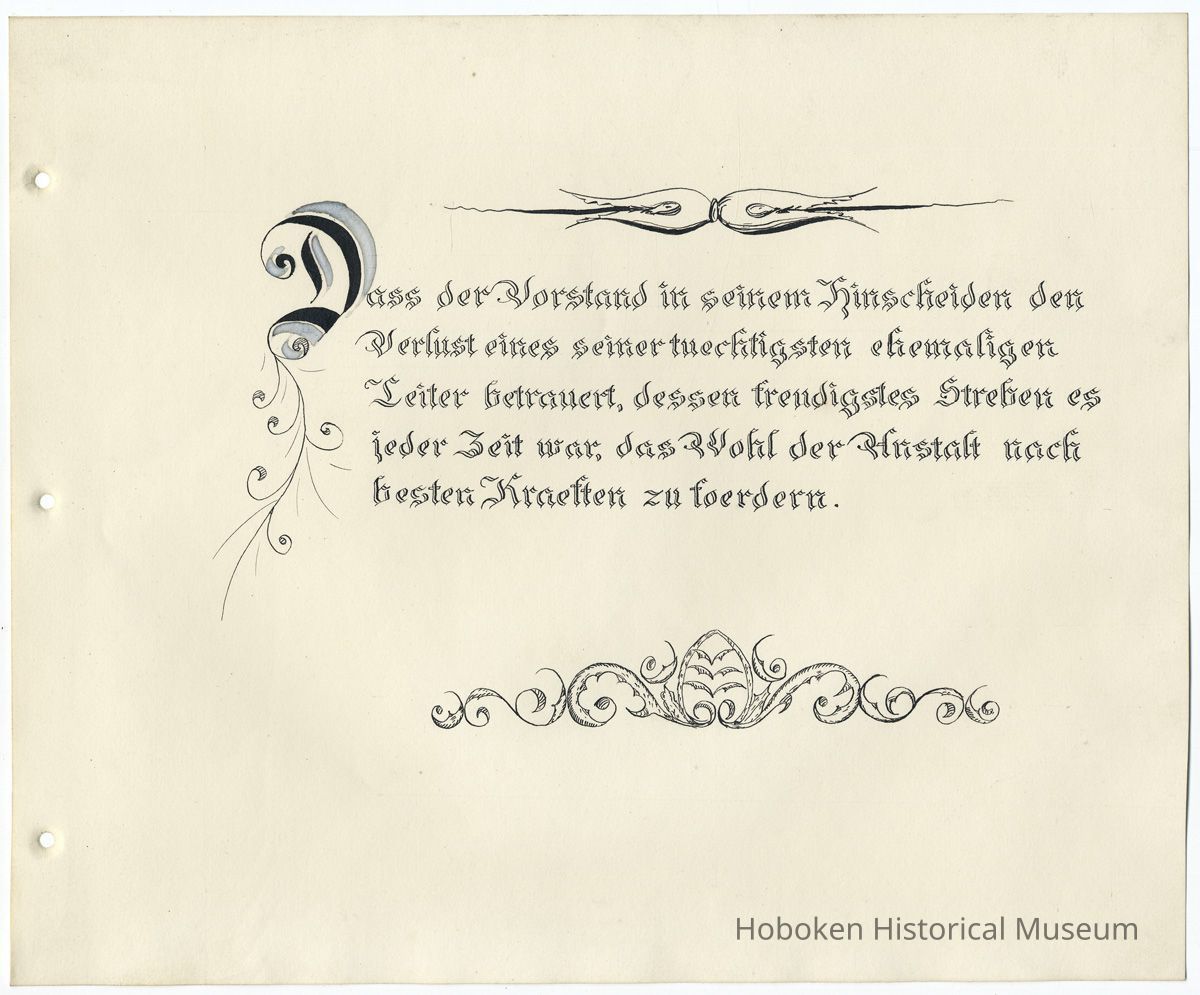 Dass der Vorstand in seinem Hinscheiden den
Verlust eines seiner tuechtigsten ehemaligen
Leiter betrauert, dessen freudigstes Streben es
jeder Zeit war, das Wohl der Anstalt nach
besten Kraeften zu foerdern.
Hoboken Historical Museum